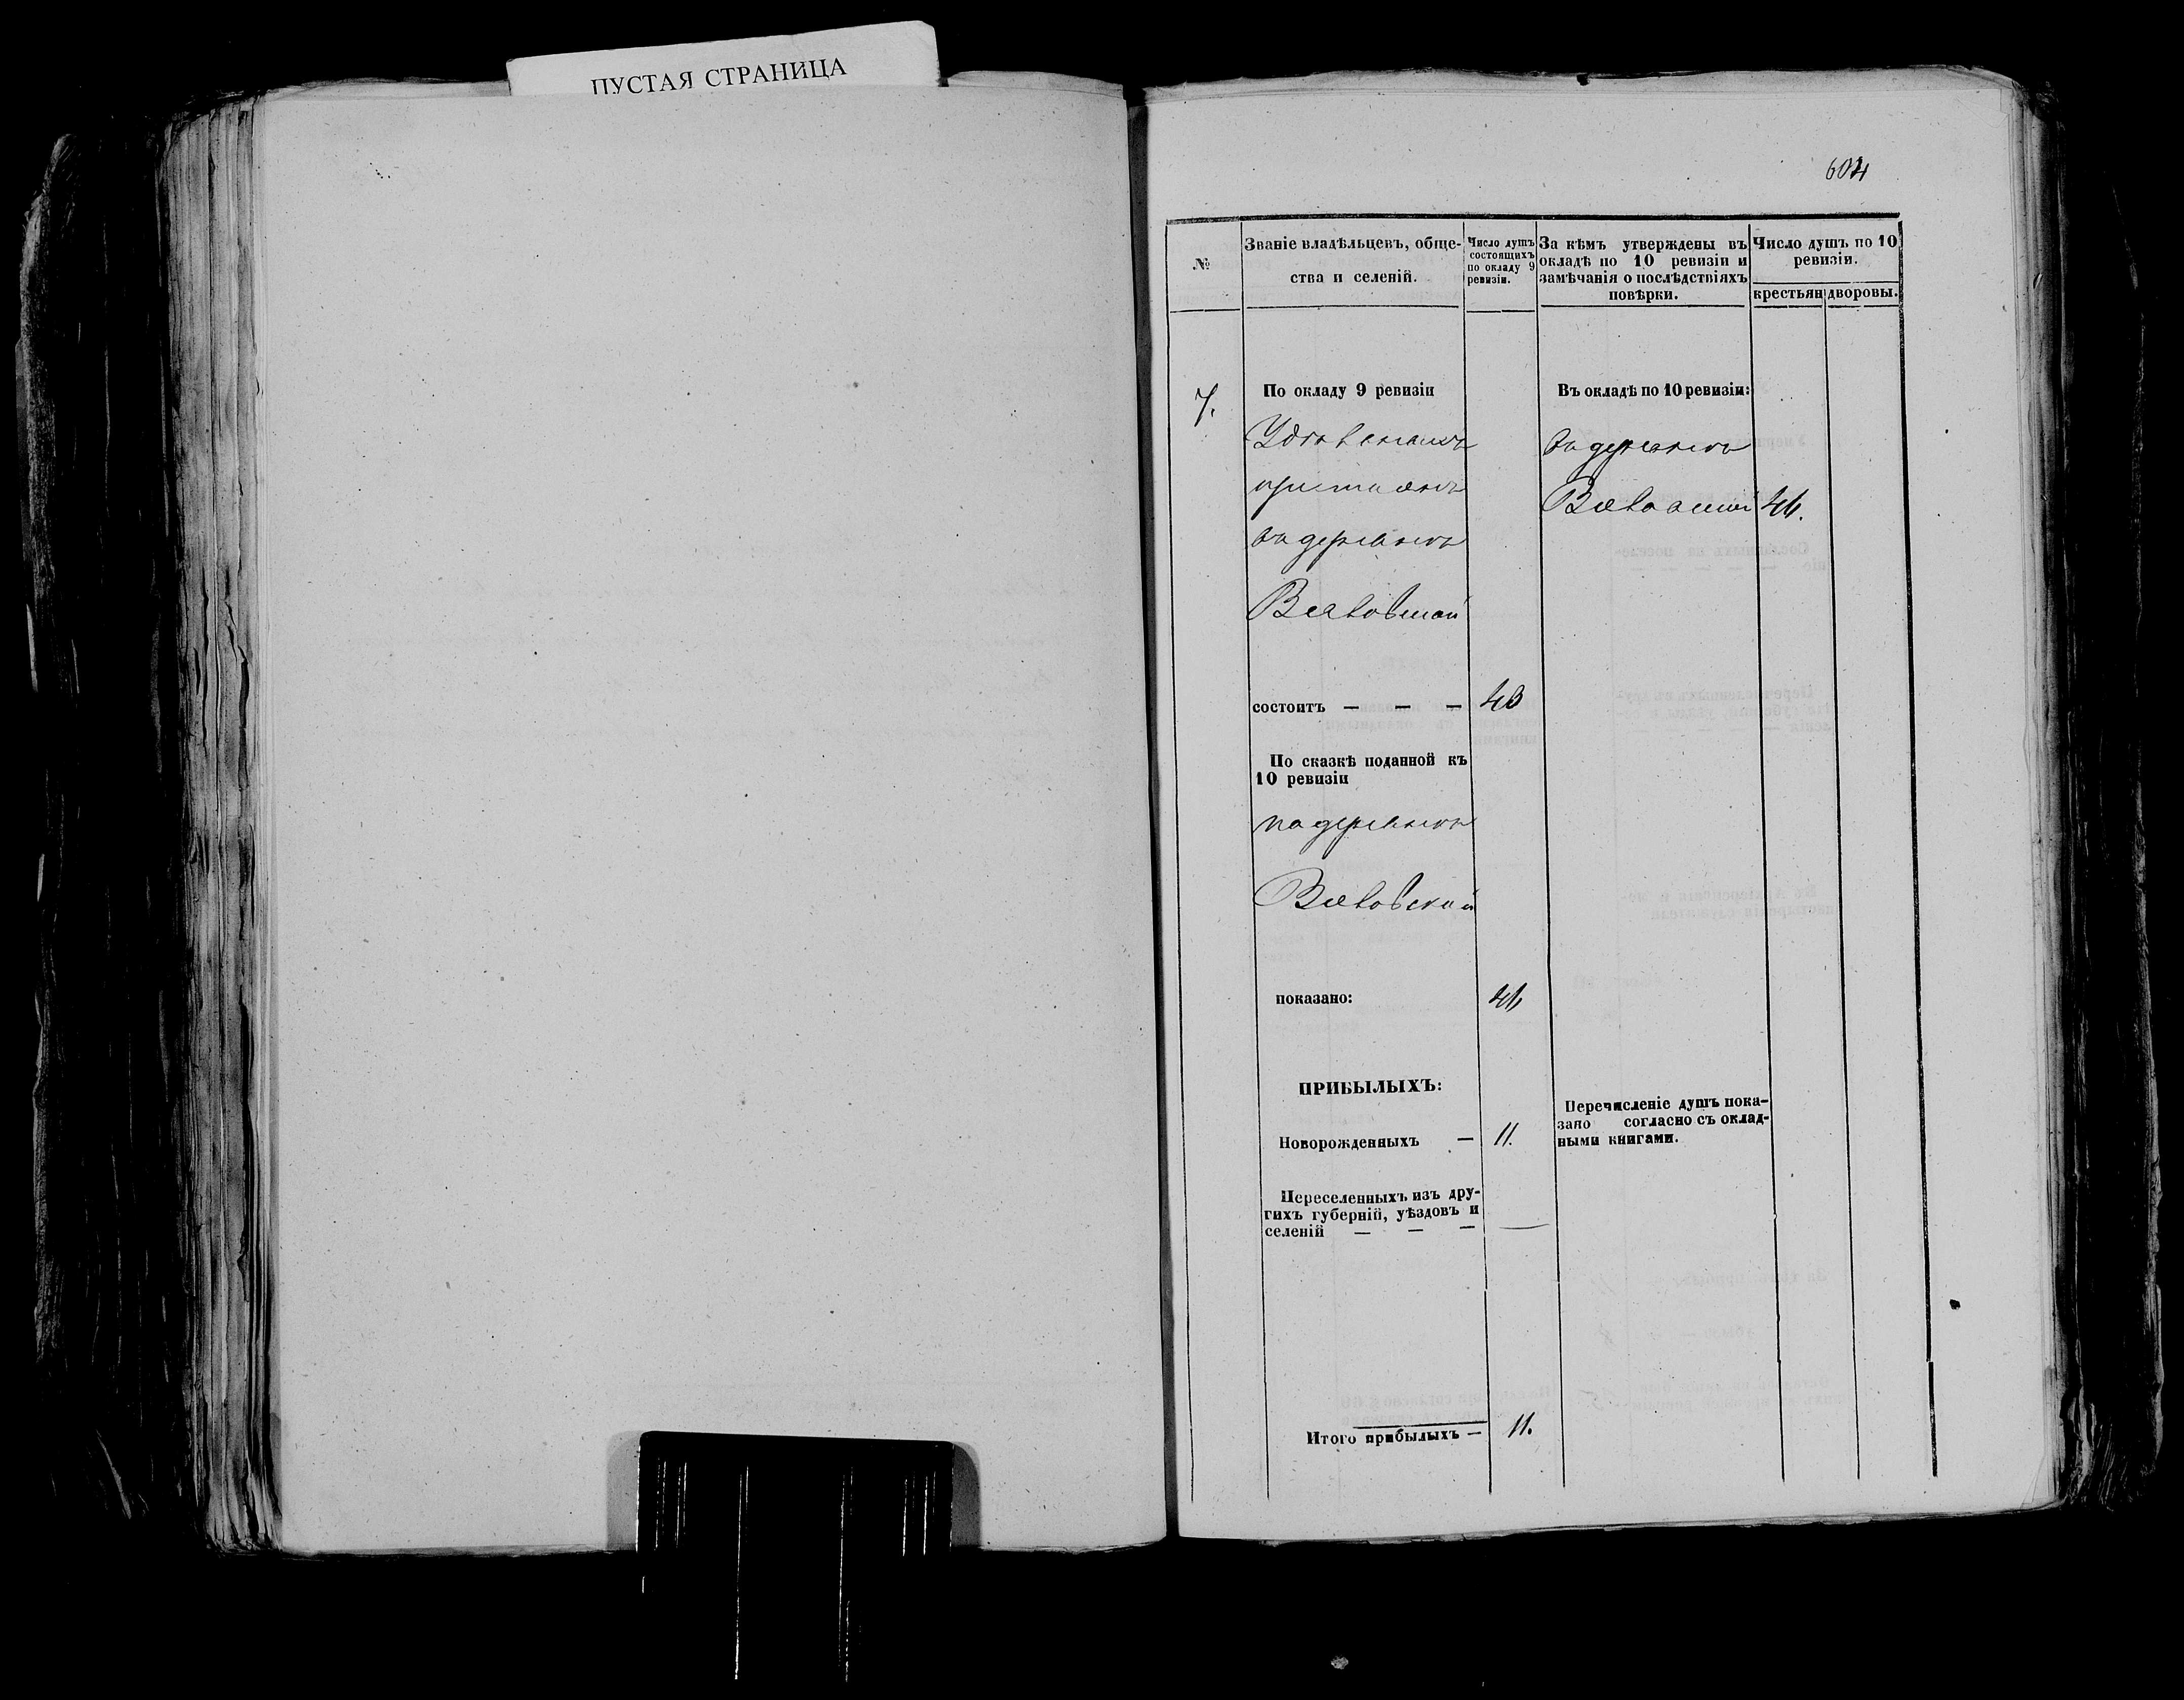 ПУСТАЯ СТРАНИЦА
604
№
Званіе владѣльцевъ, обще-
ства и селеній.
Число душъ
состоящихъ
по окладу 9
ревизіи.
За кѣмъ утверждены въ
окладѣ по 10 ревизіи и
замѣчанія о послѣдствіяхъ
повѣрки.
Число душъ по 10
ревизіи.
крестьян
дворовы.
7.
По окладу 9 ревизіи
крестьянъ
въ деревнѣ
состоитъ — — —
По сказкѣ поданной къ
10 ревизіи
по деревнѣ
показано:
ПРИБЫЛЫХЪ:
Новорожденныхъ — 11.
Переселенныхъ изъ дру-
гихъ губерній, уѣздовъ и
селеній — — — —
Итого прибылыхъ — 11.
Въ окладѣ по 10 ревизіи:
въ деревнѣ
Перечисленіе душъ пока-
зано согласно съ оклад-
ными книгами.